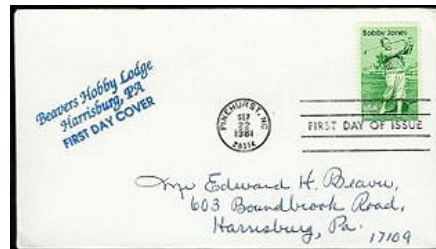 Beavers Hobby Lodge
Harrisburg, PA
FIRST DAY COVER
Bobby Jones
PINEHURST, NC
SEP
22
1981
28374
FIRST DAY OF ISSUE
USA
Mr Edward H. Beaver,
603 Boundbrook Road,
Harrisburg, Pa.
17109